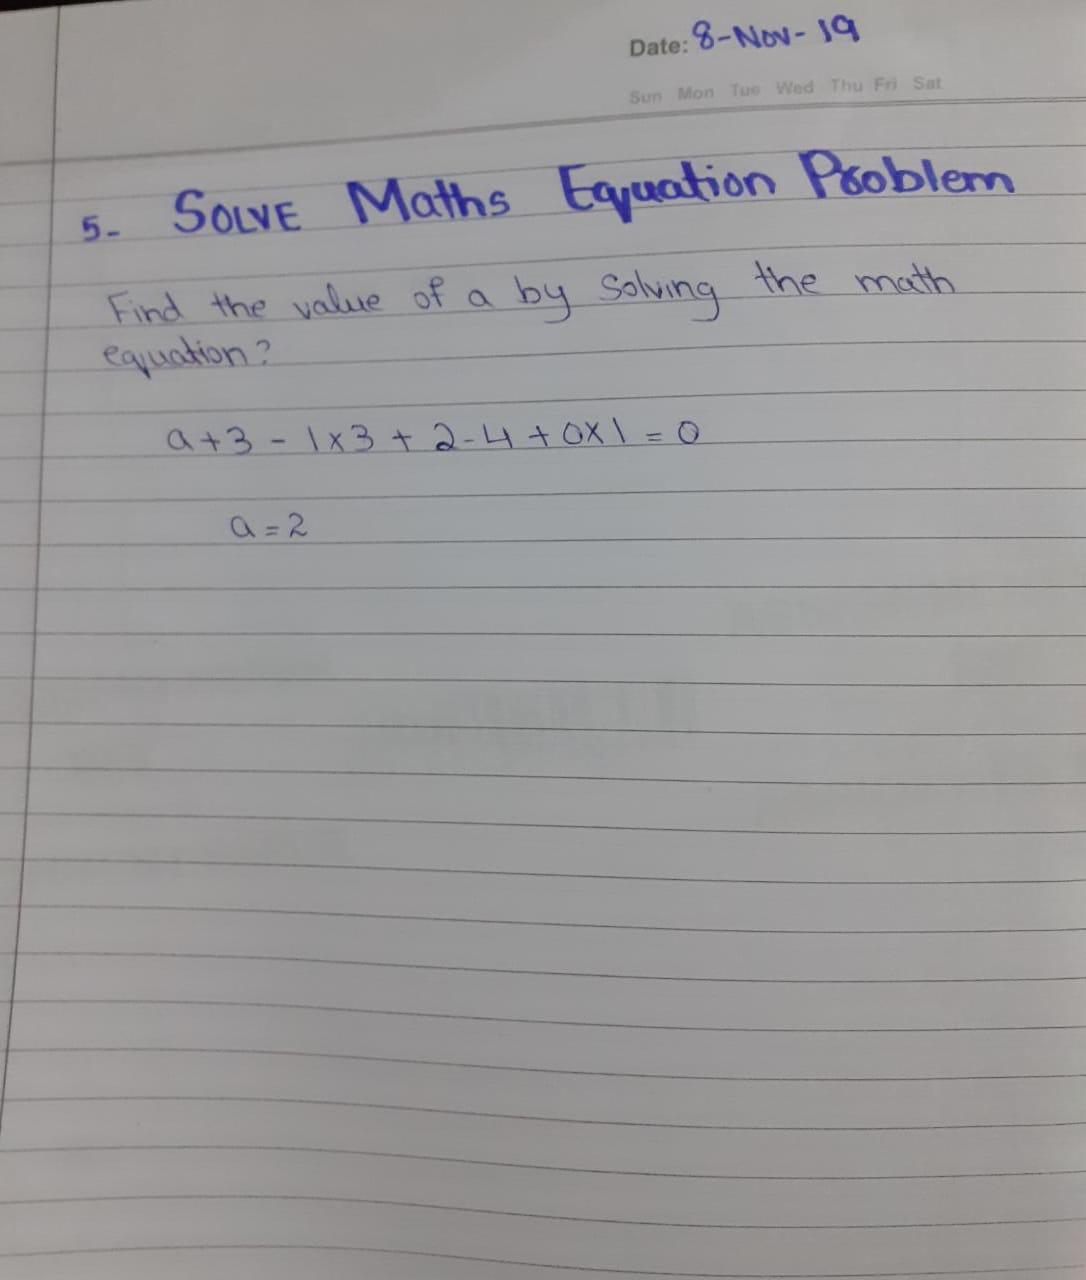 Date: 8-Nov-19
Sun Mon Tue Wed Thu Fri Sat
5- SOLVE Maths Equation Problem
Find the value of a by solving the math
equation?
a+3-1x3+2-4+0x1=0
a=2